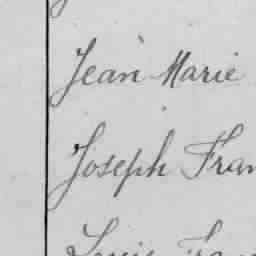 Jean Marie
Joseph Fran
Louis Fran